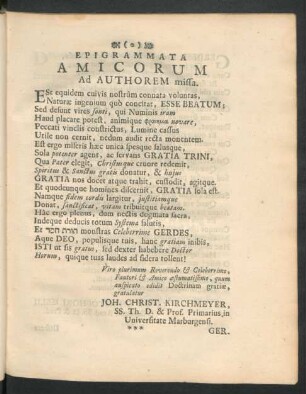 (o)
EPIGRAMMATA
AMICORUM
Ad AUTHOREM missa.
ESse equidem cuivis nostrûm connata voluntas,
Naturæ ingenium quò concitat, ESSE BEATUM;
Sed desunt vires fonti, qui Numinis iram
Haud placare potest, animique novare,
Peccati vinclis constrictus, Lumine cassus
Utile non cernit, nedum audit recta monentem.
Est ergo miseris hæc unica spesque salusque,
Sola potenter agens, ac servans GRATIA TRINI,
Qua Pater elegit, Christusque cruore redemit,
Spiritus & Sanctus gratis donatur, & hujus
GRATIA nos docet atque trahit, custodit, agitque.
Et quodcunque homines discernit, GRATIA sola est.
Namque fidem cordis largitur, justitiamque
Donat, sanctificat, vitam tribuitque beatam.
Hac ergo plenum, dum nectis dogmata sacra,
Indeque deducis totum Systema salutis,
Et תורת חסד monstras Celeberrime GERDES,
Aque DEO, populisque tuis, hanc gratiam inibis,
ISTI ut sis gratus, sid dexter habebere Doctor
Horum, quique tuas laudes ad sidera tollent!
Viro plurimum Reverendo & Celeberrimo,
Fautori & Amico æstumatissimo, quum
auspicato edidit Doctrinam gratiæ,
gratulatur
JOH. CHRIST. KIRCHMEYER,
SS. Th. D. & Prof. Primarius, in
Universitate Marburgensi.
***
GER.